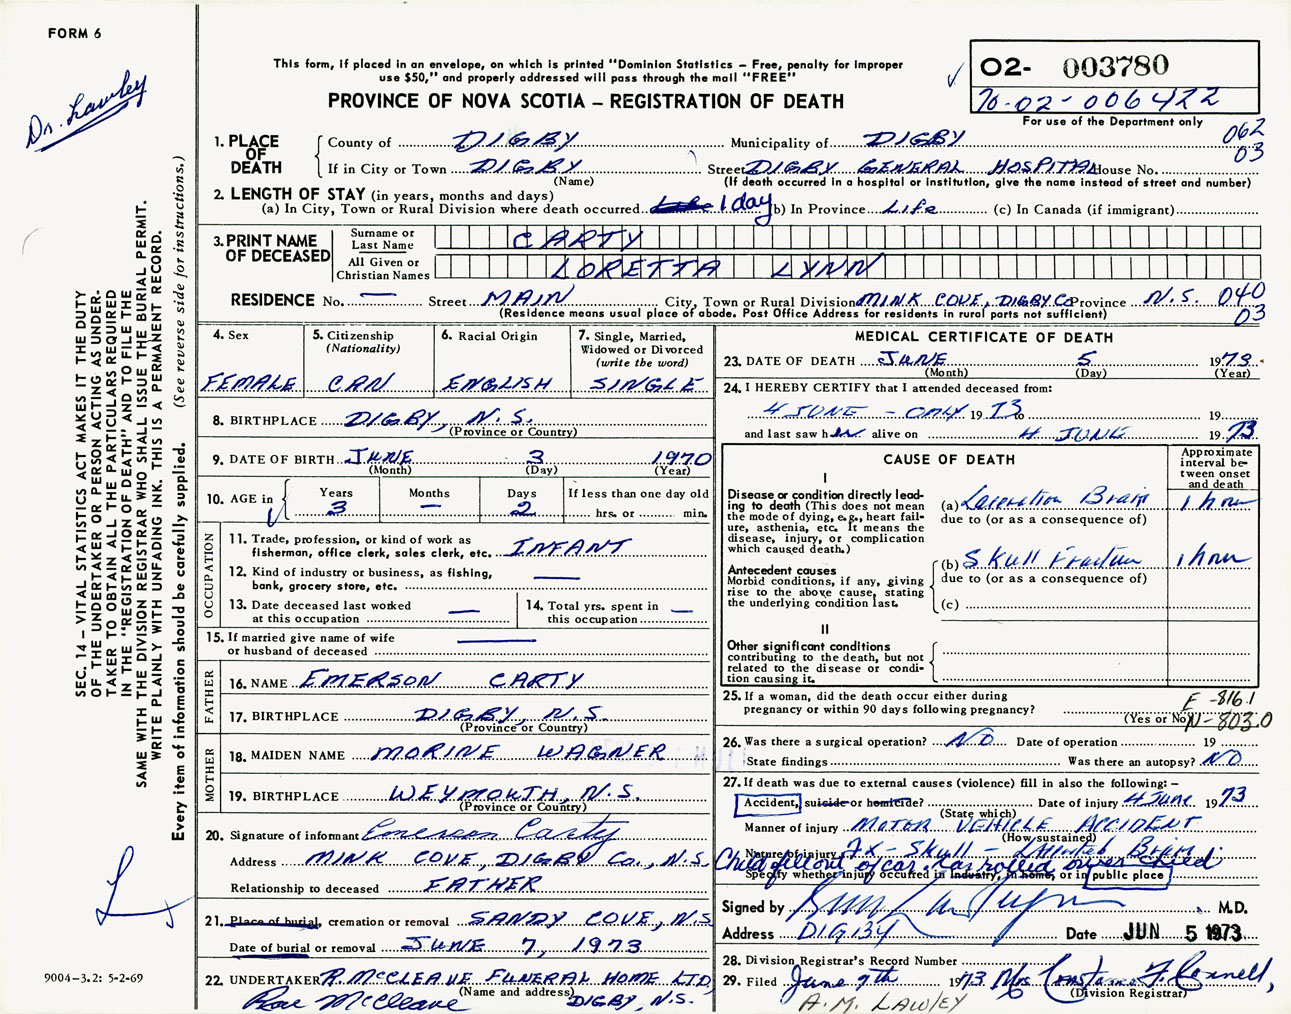 FORM 6
Dr. Lawley
This form, if placed in an envelope, on which is printed "Dominion Statistics – Free, penalty for improper
use $50," and properly addressed will pass through the mail "FREE"
PROVINCE OF NOVA SCOTIA – REGISTRATION OF DEATH
02- 003780
70-02-006422
For use of the Department only
062
03
1. PLACE OF DEATH
County of DIGBY Municipality of DIGBY
If in City or Town DIGBY Street DIGBY GENERAL HOSPITAL House No.
(Name) (If death occurred in a hospital or institution, give the name instead of street and number)
2. LENGTH OF STAY (in years, months and days)
(a) In City, Town or Rural Division where death occurred 1 day (b) In Province Life (c) In Canada (if immigrant)
3. PRINT NAME OF DECEASED
Surname or Last Name CARTY
All Given or Christian Names LORETTA LYNN
RESIDENCE No. — Street MAIN City, Town or Rural Division MINK COVE, DIGBY Co Province N.S. 040
03
(Residence means usual place of abode. Post Office Address for residents in rural parts not sufficient)
4. Sex
FEMALE
5. Citizenship (Nationality)
CAN
6. Racial Origin
ENGLISH
7. Single, Married, Widowed or Divorced (write the word)
SINGLE
8. BIRTHPLACE DIGBY, N.S.
(Province or Country)
9. DATE OF BIRTH JUNE 3 1970
(Month) (Day) (Year)
10. AGE in Years Months Days If less than one day old
3 — 2 hrs. or min.
OCCUPATION
11. Trade, profession, or kind of work as
fisherman, office clerk, sales clerk, etc. INFANT
12. Kind of industry or business, as fishing,
bank, grocery store, etc. —
13. Date deceased last worked
at this occupation —
14. Total yrs. spent in
this occupation —
15. If married give name of wife
or husband of deceased —
FATHER
16. NAME EMERSON CARTY
17. BIRTHPLACE DIGBY, N.S.
(Province or Country)
MOTHER
18. MAIDEN NAME MORINE WAGNER
19. BIRTHPLACE WEYMOUTH, N.S.
(Province or Country)
20. Signature of informant Emerson Carty
Address MINK COVE, DIGBY Co., N.S.
Relationship to deceased FATHER
21. Place of burial, cremation or removal SANDY COVE, N.S
Date of burial or removal JUNE 7, 1973
22. UNDERTAKER R. McCLEAVE FUNERAL HOME LTD,
(Name and address) DIGBY, N.S.
Rae McCleave
MEDICAL CERTIFICATE OF DEATH
23. DATE OF DEATH JUNE 5 1973.
(Month) (Day) (Year)
24. I HEREBY CERTIFY that I attended deceased from:
4 JUNE - ONLY 1973 to 19
and last saw her alive on 4 JUNE 1973.
CAUSE OF DEATH
Approximate interval between onset and death
I
Disease or condition directly lead-
ing to death (This does not mean
the mode of dying, e.g., heart fail-
ure, asthenia, etc. It means the
disease, injury, or complication
which caused death.)
(a) Laceration Brain 1 hour
due to (or as a consequence of)
Antecedent causes
Morbid conditions, if any, giving
rise to the above cause, stating
the underlying condition last.
(b) Skull Fracture 1 hour
due to (or as a consequence of)
(c)
II
Other significant conditions
contributing to the death, but not
related to the disease or condi-
tion causing it.
25. If a woman, did the death occur either during
pregnancy or within 90 days following pregnancy?
(Yes or No)
E -816.1
N-803.0
26. Was there a surgical operation? NO Date of operation 19
State findings Was there an autopsy? NO
27. If death was due to external causes (violence) fill in also the following:–
Accident, suicide or homicide? Date of injury 4 June 1973
(State which)
Manner of injury MOTOR VEHICLE ACCIDENT
(How sustained)
Nature of injury FX - Skull - Brain
Child fell out of car, car rolled over child
Specify whether injury occurred in industry, in home, or in public place
Signed by M.D.
Address DIGBY Date JUN 5 1973
28. Division Registrar's Record Number
29. Filed June 7th 1973 Mrs Constance F. Connell,
(Division Registrar)
A.M. LAWLEY
SEC. 14 – VITAL STATISTICS ACT MAKES IT THE DUTY
OF THE UNDERTAKER OR PERSON ACTING AS UNDER-
TAKER TO OBTAIN ALL THE PARTICULARS REQUIRED
IN THE "REGISTRATION OF DEATH" AND TO FILE THE
SAME WITH THE DIVISION REGISTRAR WHO SHALL ISSUE THE BURIAL PERMIT.
WRITE PLAINLY WITH UNFADING INK. THIS IS A PERMANENT RECORD.
Every item of information should be carefully supplied. (See reverse side for instructions.)
9004–3.2: 5-2-69